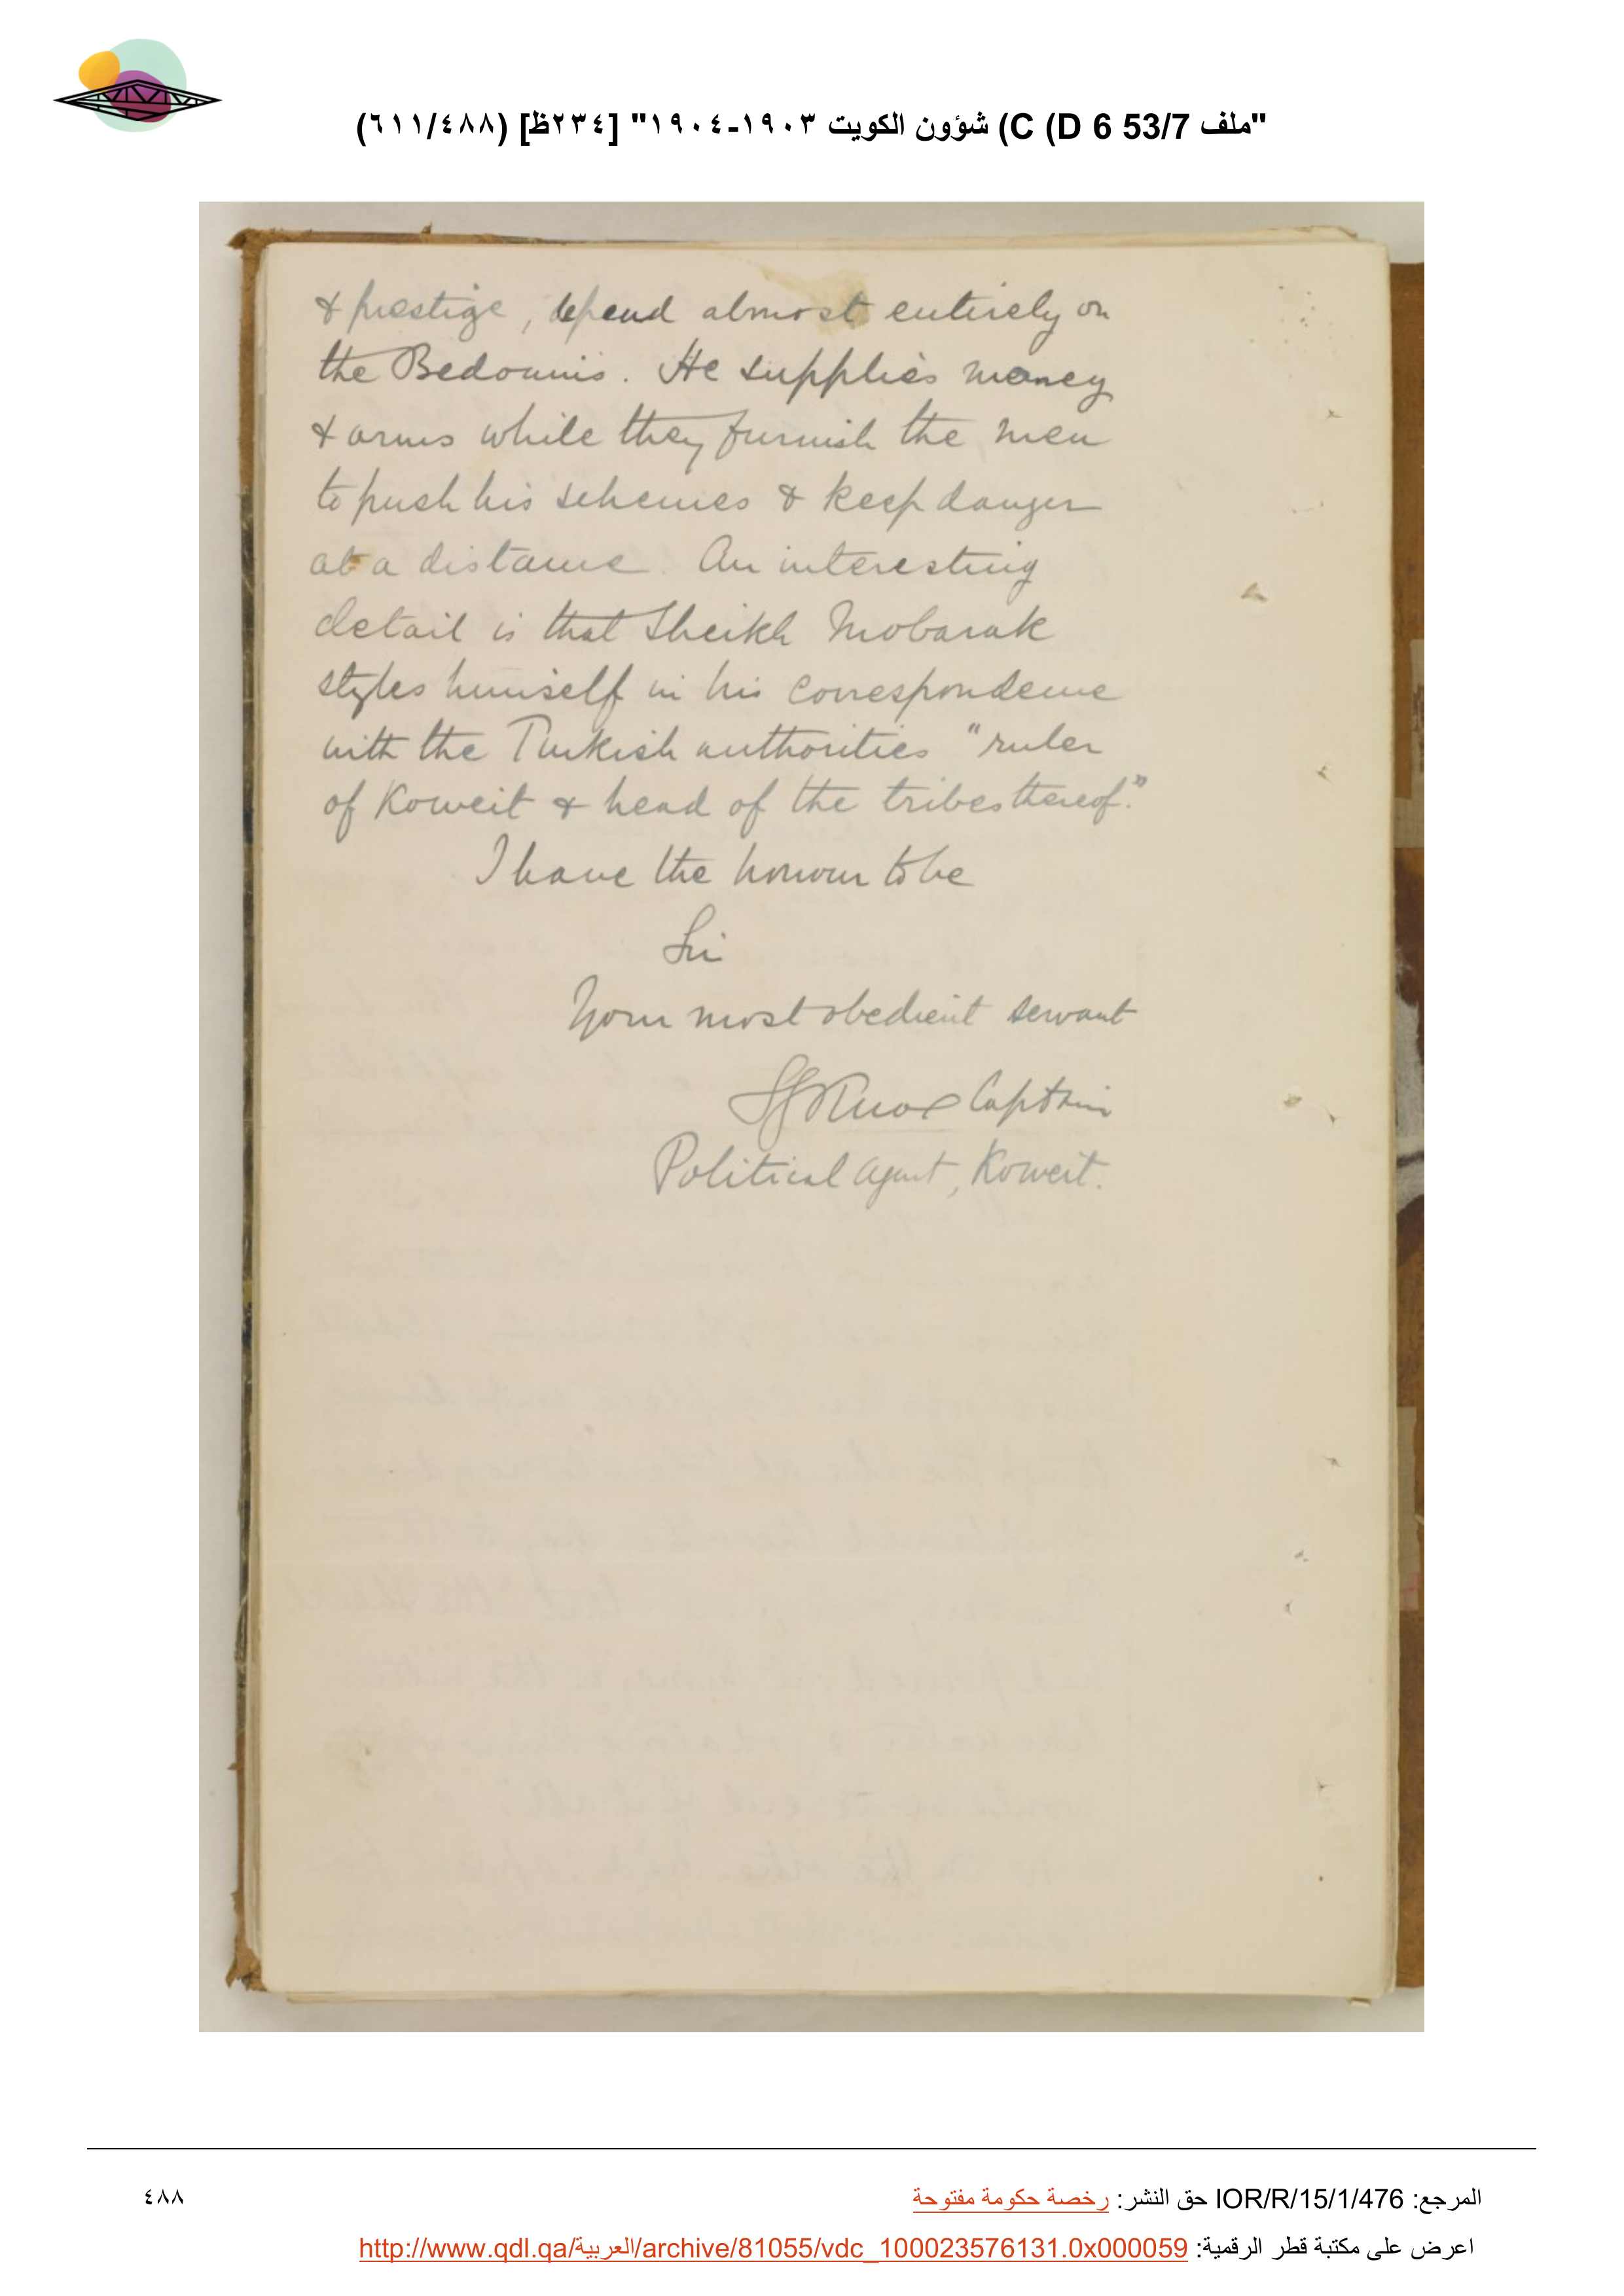 "ملف 53/7 C (D 6) شؤون الكويت ١٩٠٣-١٩٠٤" [٢٣٤ظ] (٦١١/٤٨٨)
& prestige, depend almost entirely on
the Bedouins. He supplies money
& arms while they furnish the men
to push his schemes & keep danger
at a distance. An interesting
detail is that Sheikh Mobarak
styles himself in his correspondence
with the Turkish authorities "ruler
of Koweit & head of the tribes thereof."
I have the honour to be
Sir
Your most obedient servant
SGKnox Captain
Political Agent, Koweit.
المرجع: IOR/R/15/1/476 حق النشر: رخصة حكومة مفتوحة
٤٨٨
اعرض على مكتبة قطر الرقمية: http://www.qdl.qa/العربية/archive/81055/vdc_100023576131.0x000059